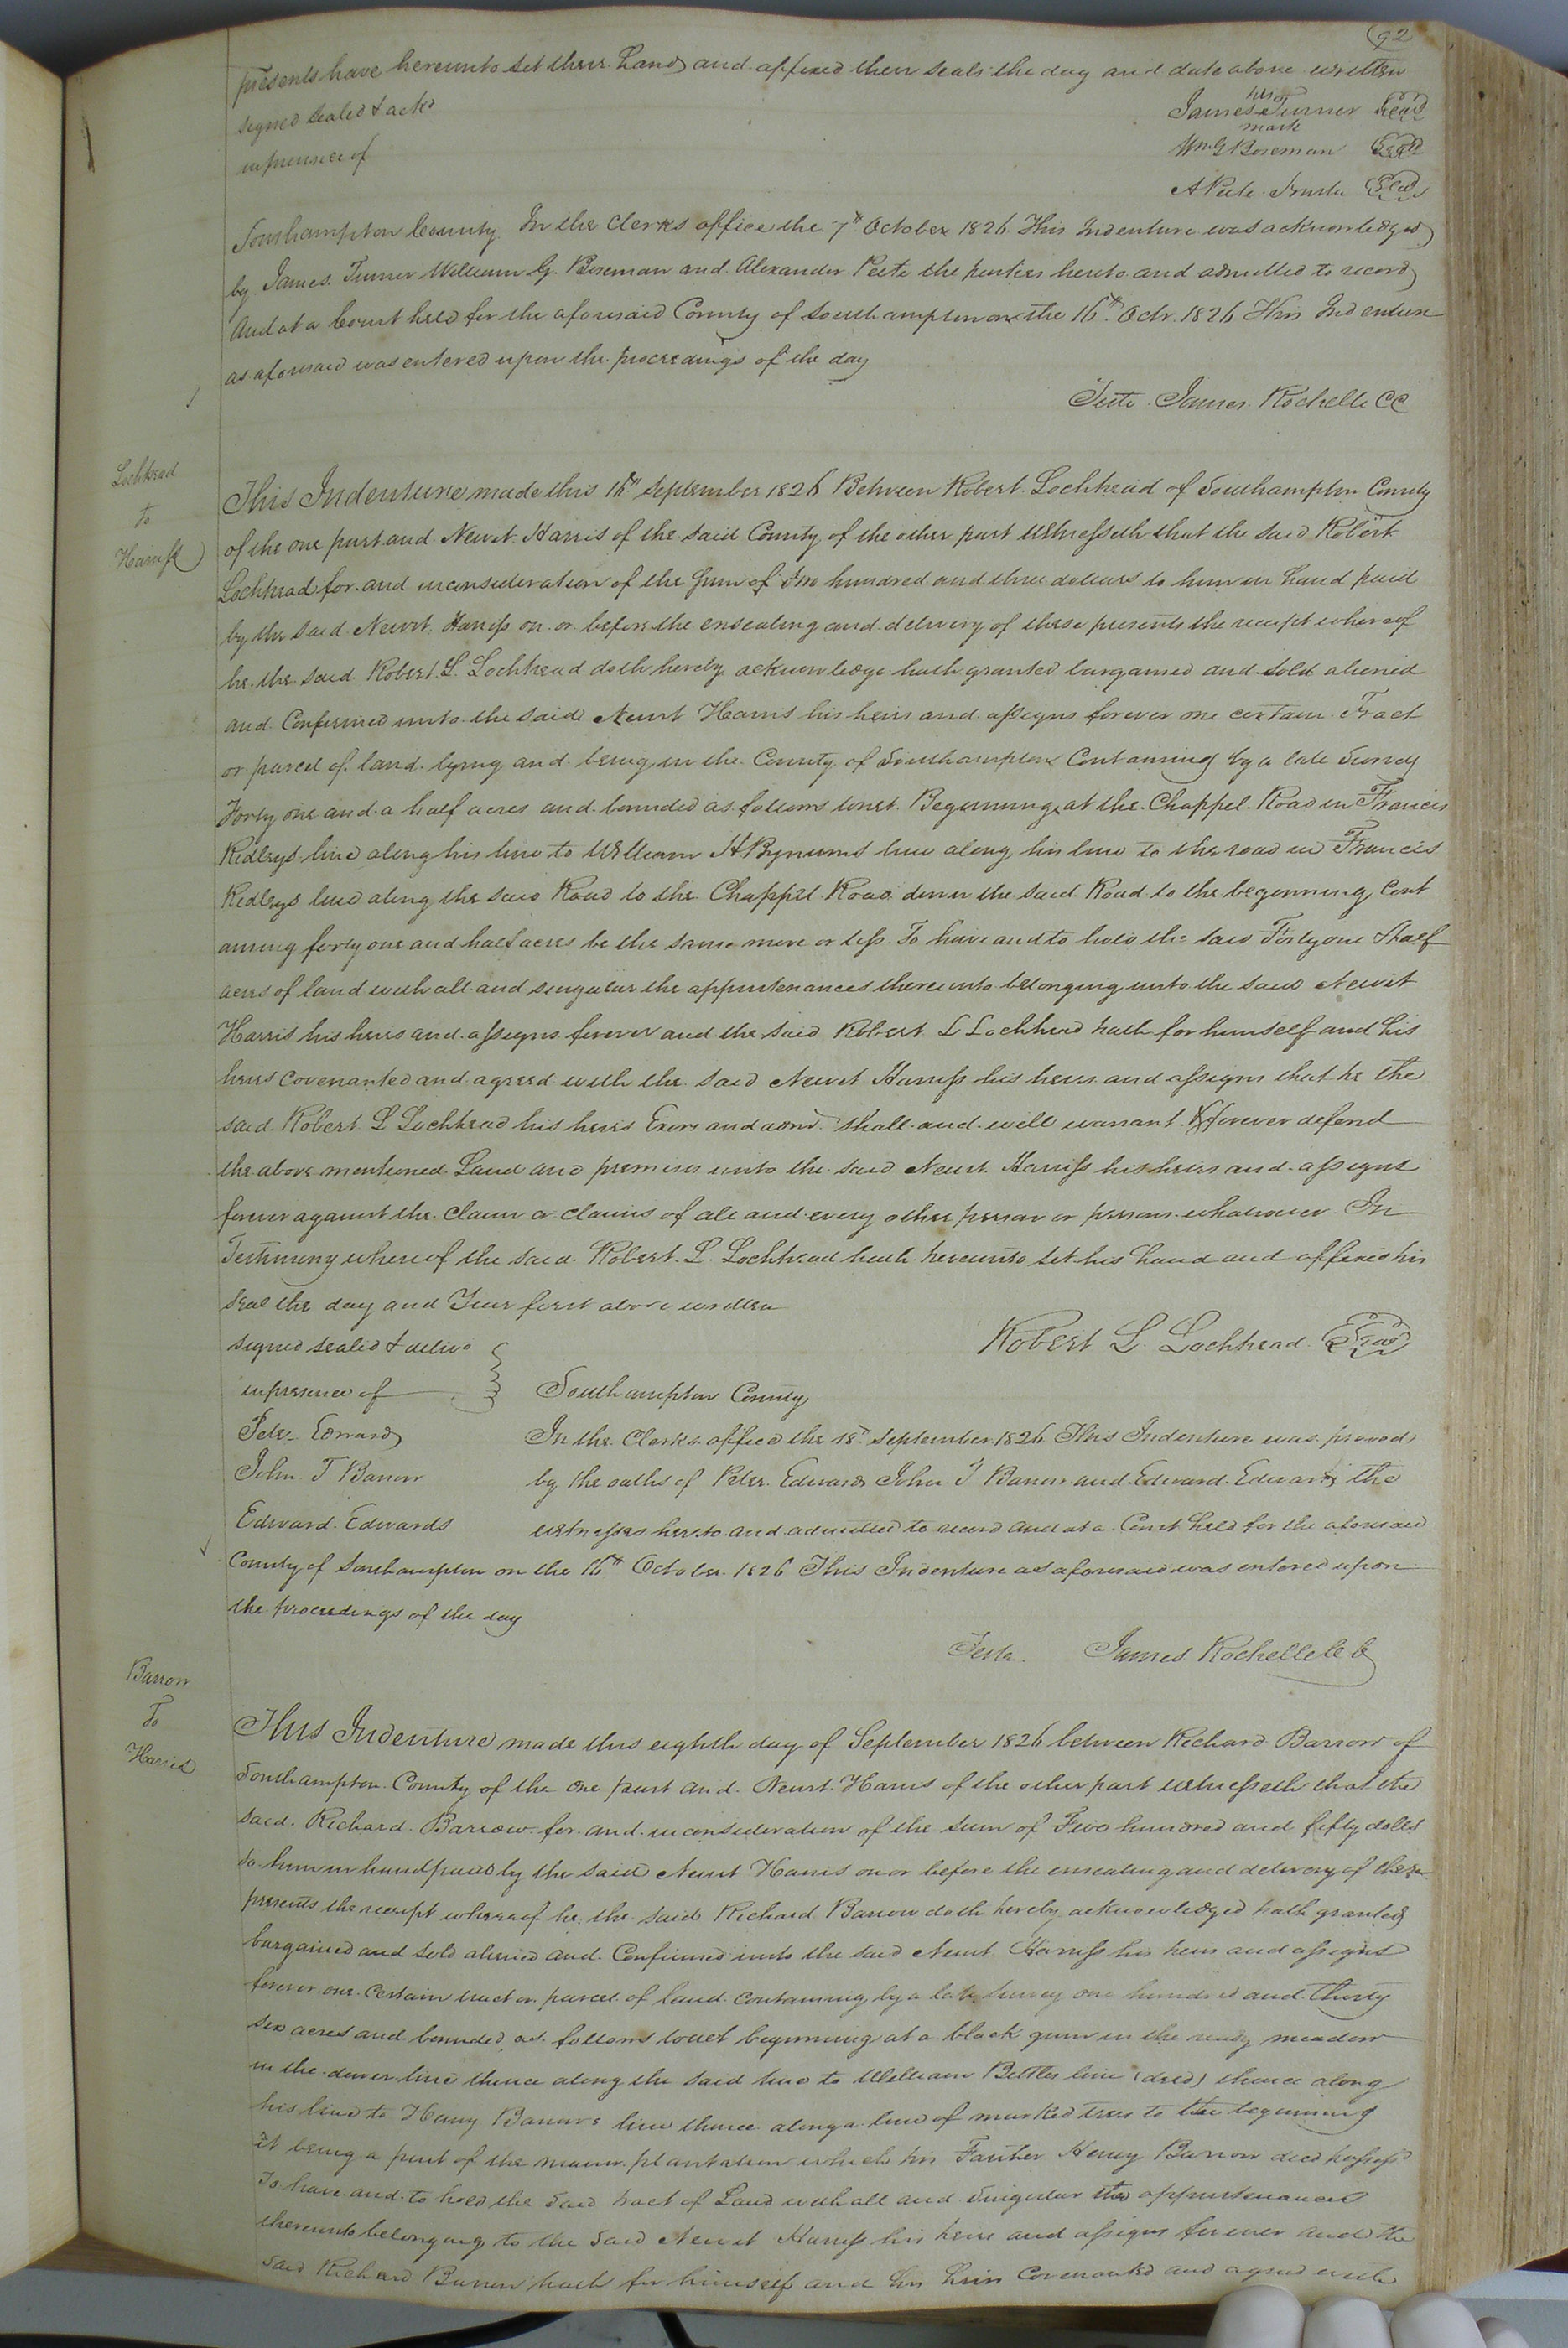 92
presents have hereunto set their hands and affixed their seals the day and date above written
signed sealed & ackd
in presence of
his
James Turner Seal
mark
Wm G Boseman Seal
A Peete Trustee Seal
Southampton County In the Clerks office the 7th October 1826 This Indenture was acknowledged
by James Turner William G. Boseman and Alexander Peete the parties hereto and admitted to record
And at a Court held for the aforesaid County of Southampton on the 16th Octr. 1826 This Indenture
as aforesaid was entered upon the proceedings of the day
Teste James Rochelle CC
Lochhead
to
Harriss
This Indenture made this 16th September 1826 Between Robert Lochhead of Southampton County
of the one part and Newit Harris of the said County of the other part Witnesseth that the said Robert
Lochhead for and in consideration of the Sum of Two hundred and three dollars to him in hand paid
by the said Newit Harriss on or before the ensealing and delivery of these presents the receipt whereof
he the said Robert L. Lochhead doth hereby acknowledge hath granted bargained and sold aliened
and Confirmed unto the said Newit Harris his heirs and assigns forever one certain Tract
or parcel of land lying and being in the County of Southampton Containing by a late Survey
Forty one and a half acres and bounded as follows towit. Beginning at the Chappel Road in Francis
Ridleys line along his line to William H Bynums line along his line to the road in Francis
Ridleys line along the said Road to the Chappel Road down the said Road to the beginning Cont
aining forty one and half acres be the same more or less To have and to hold the said Forty one & half
acres of land with all and singular the appurtenances thereunto belonging unto the said Newit
Harris his heirs and assigns forever and the said Robert L Lochhead hath for himself and his
heirs Covenanted and agreed with the said Newit Harriss his heirs and assigns that he the
said Robert L Lochhead his heirs Exors and admr. shall and will warrant & forever defend
the above mentioned Land and premises unto the said Newit Harriss his heirs and assigns
forever against the claim or claims of all and every other person or persons whatsoever In
Testimony whereof the said Robert L. Lochhead hath hereunto set his hand and affixed his
seal the day and Year first above written
Robert L. Lochhead Seal
signed sealed & delivd
in presence of
Southampton County
Peter Edwards
In the Clerks office the 18th September 1826 This Indenture was proved
John T Barrow
by the oaths of Peter Edwards John T Barrow and Edward Edwards the
Edward Edwards
witnesses hereto and admitted to record and at a Court held for the aforesaid
County of Southampton on the 16th October 1826 This Indenture as aforesaid was entered upon
the proceedings of the day
Teste James Rochelle CC
Barrow
To
Harris
This Indenture made this eighth day of September 1826 between Richard Barrow of
Southampton County of the one part and Newit Harris of the other part Witnesseth that the
said Richard Barrow for and in consideration of the sum of Five hundred and fifty dolls
to him in hand paid by the said Newit Harris on or before the ensealing and delivery of these
presents the receipt whereof he the said Richard Barrow doth hereby acknowledged hath granted
bargained and sold aliened and Confirmed unto the said Newit Harriss his heirs and assigns
forever one Certain tract or parcel of land containing by a late survey one hundred and thirty
six acres and bounded as follows towit beginning at a black gum in the meadow
in the line thence along the said line to William Bittles line (decd) thence along
his line to Henry Barrows line thence along a line of marked trees to the beginning
It being a part of the plantation which his Father Henry Barrow decd possessd
To have and to hold the said tract of Land with all and Singular the appurtenances
thereunto belonging to the said Newit Harriss his heirs and assigns forever and the
said Richard Barrow hath for himself and his heirs Covenanted and agreed with